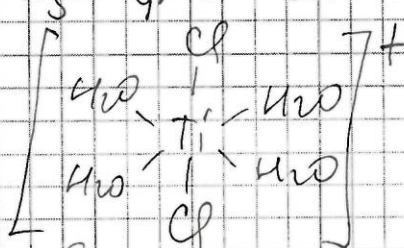 Cl
H2O H2O
Ti
H2O H2O
Cl
+